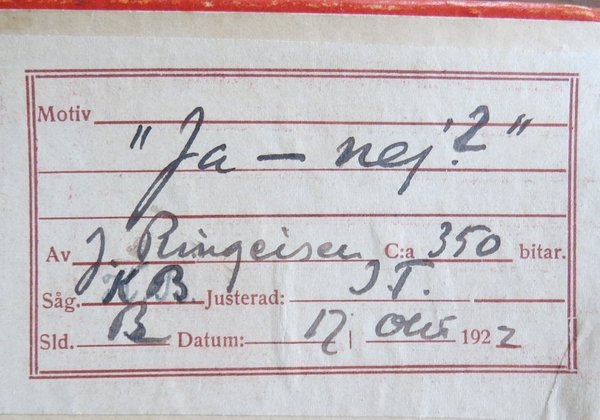 Motiv
"Ja – nej?"
Av J. Ringeisen C:a 350 bitar.
Såg. K B. Justerad: J T.
Sld. B Datum: 17 / Okt 1922